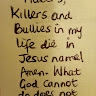 Killers and
Bullies in my
life die in
Jesus name!
Amen. What
God cannot
do does not